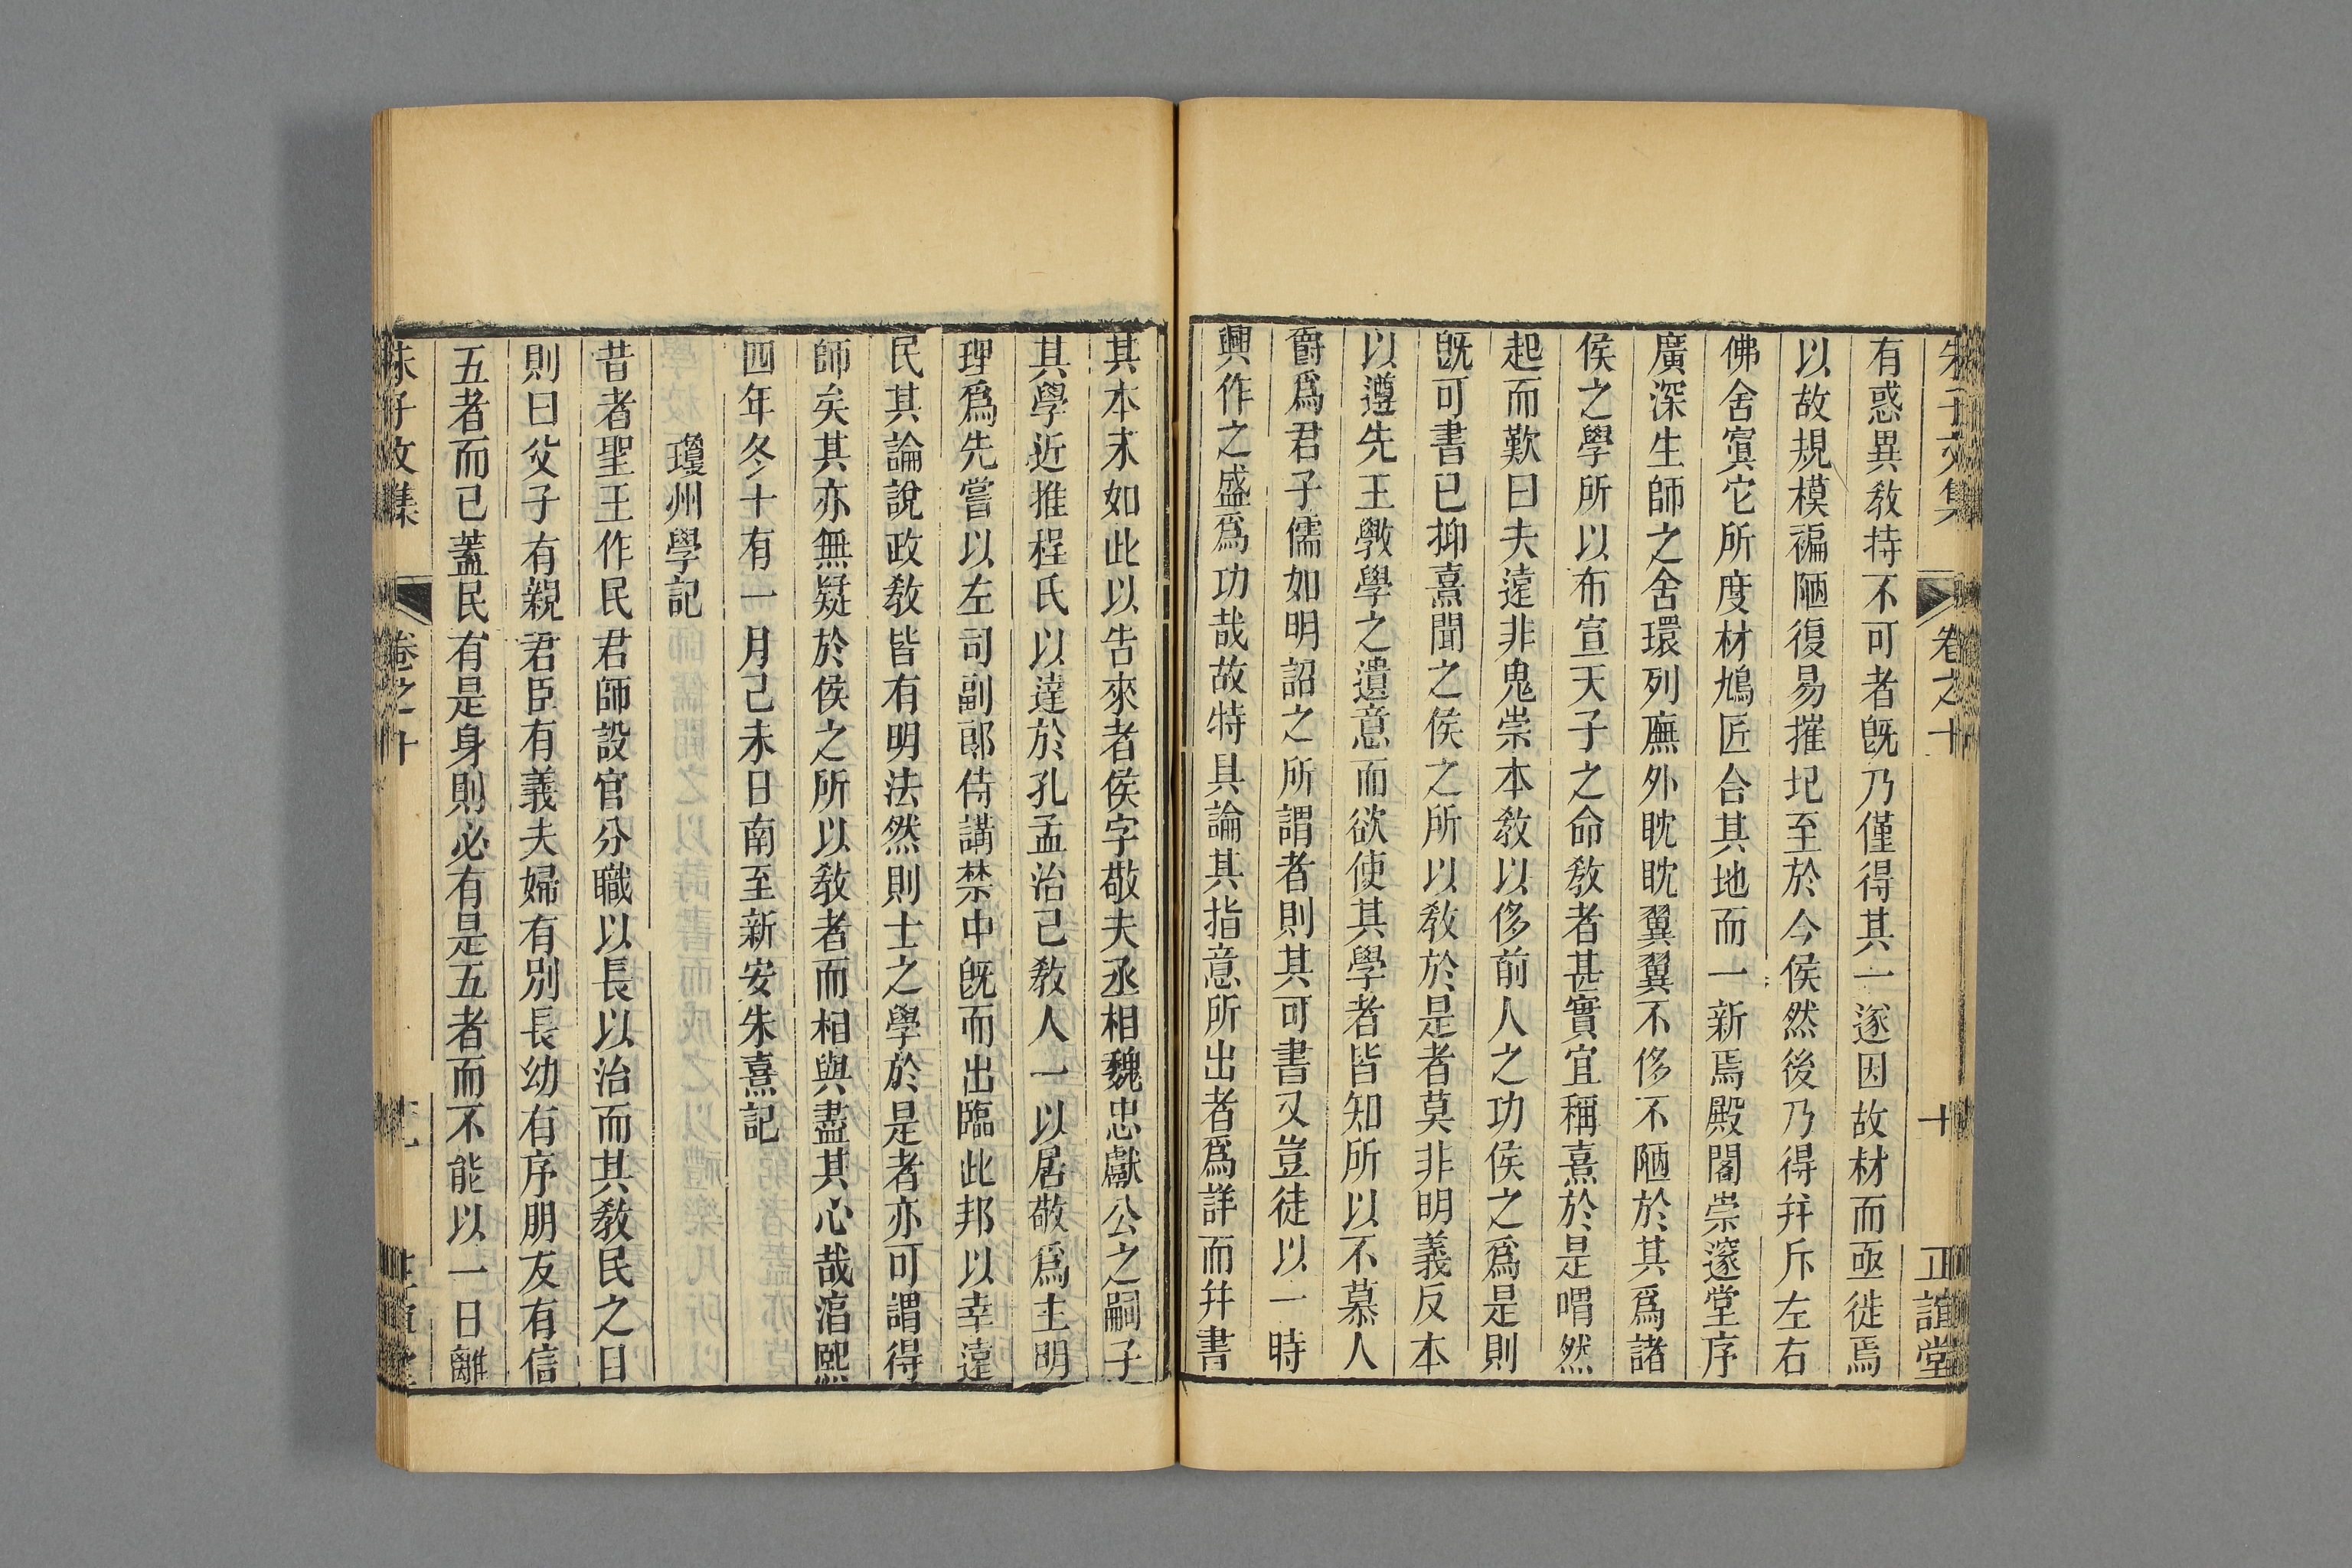 朱子文集 卷之十 十 正誼堂
有惑異教持不可者旣乃僅得其一遂因故材而亟徙焉
以故規模褊陋復易摧圮至於今侯然後乃得幷斥左右
佛舍寘它所度材鳩匠合其地而一新焉殿閣崇邃堂序
廣深生師之舍環列廡外眈眈翼翼不侈不陋於其爲諸
侯之學所以布宣天子之命教者甚實宜稱熹於是喟然
起而歎曰夫遠非鬼崇本教以侈前人之功侯之爲是則
旣可書已抑熹聞之侯之所以教於是者莫非明義反本
以遵先王斆學之遺意而欲使其學者皆知所以不慕人
爵爲君子儒如明詔之所謂者則其可書又豈徒以一時
興作之盛爲功哉故特具論其指意所出者爲詳而幷書
其本末如此以告來者侯字敬夫丞相魏忠獻公之嗣子
其學近推程氏以達於孔孟治己教人一以居敬爲主明
理爲先嘗以左司副郎侍講禁中旣而出臨此邦以幸遠
民其論說政教皆有明法然則士之學於是者亦可謂得
師矣其亦無疑於侯之所以教者而相與盡其心哉淳熙
四年冬十有一月己未日南至新安朱熹記
瓊州學記
昔者聖王作民君師設官分職以長以治而其教民之目
則曰父子有親君臣有義夫婦有別長幼有序朋友有信
五者而已蓋民有是身則必有是五者而不能以一日離
朱子文集 卷之十